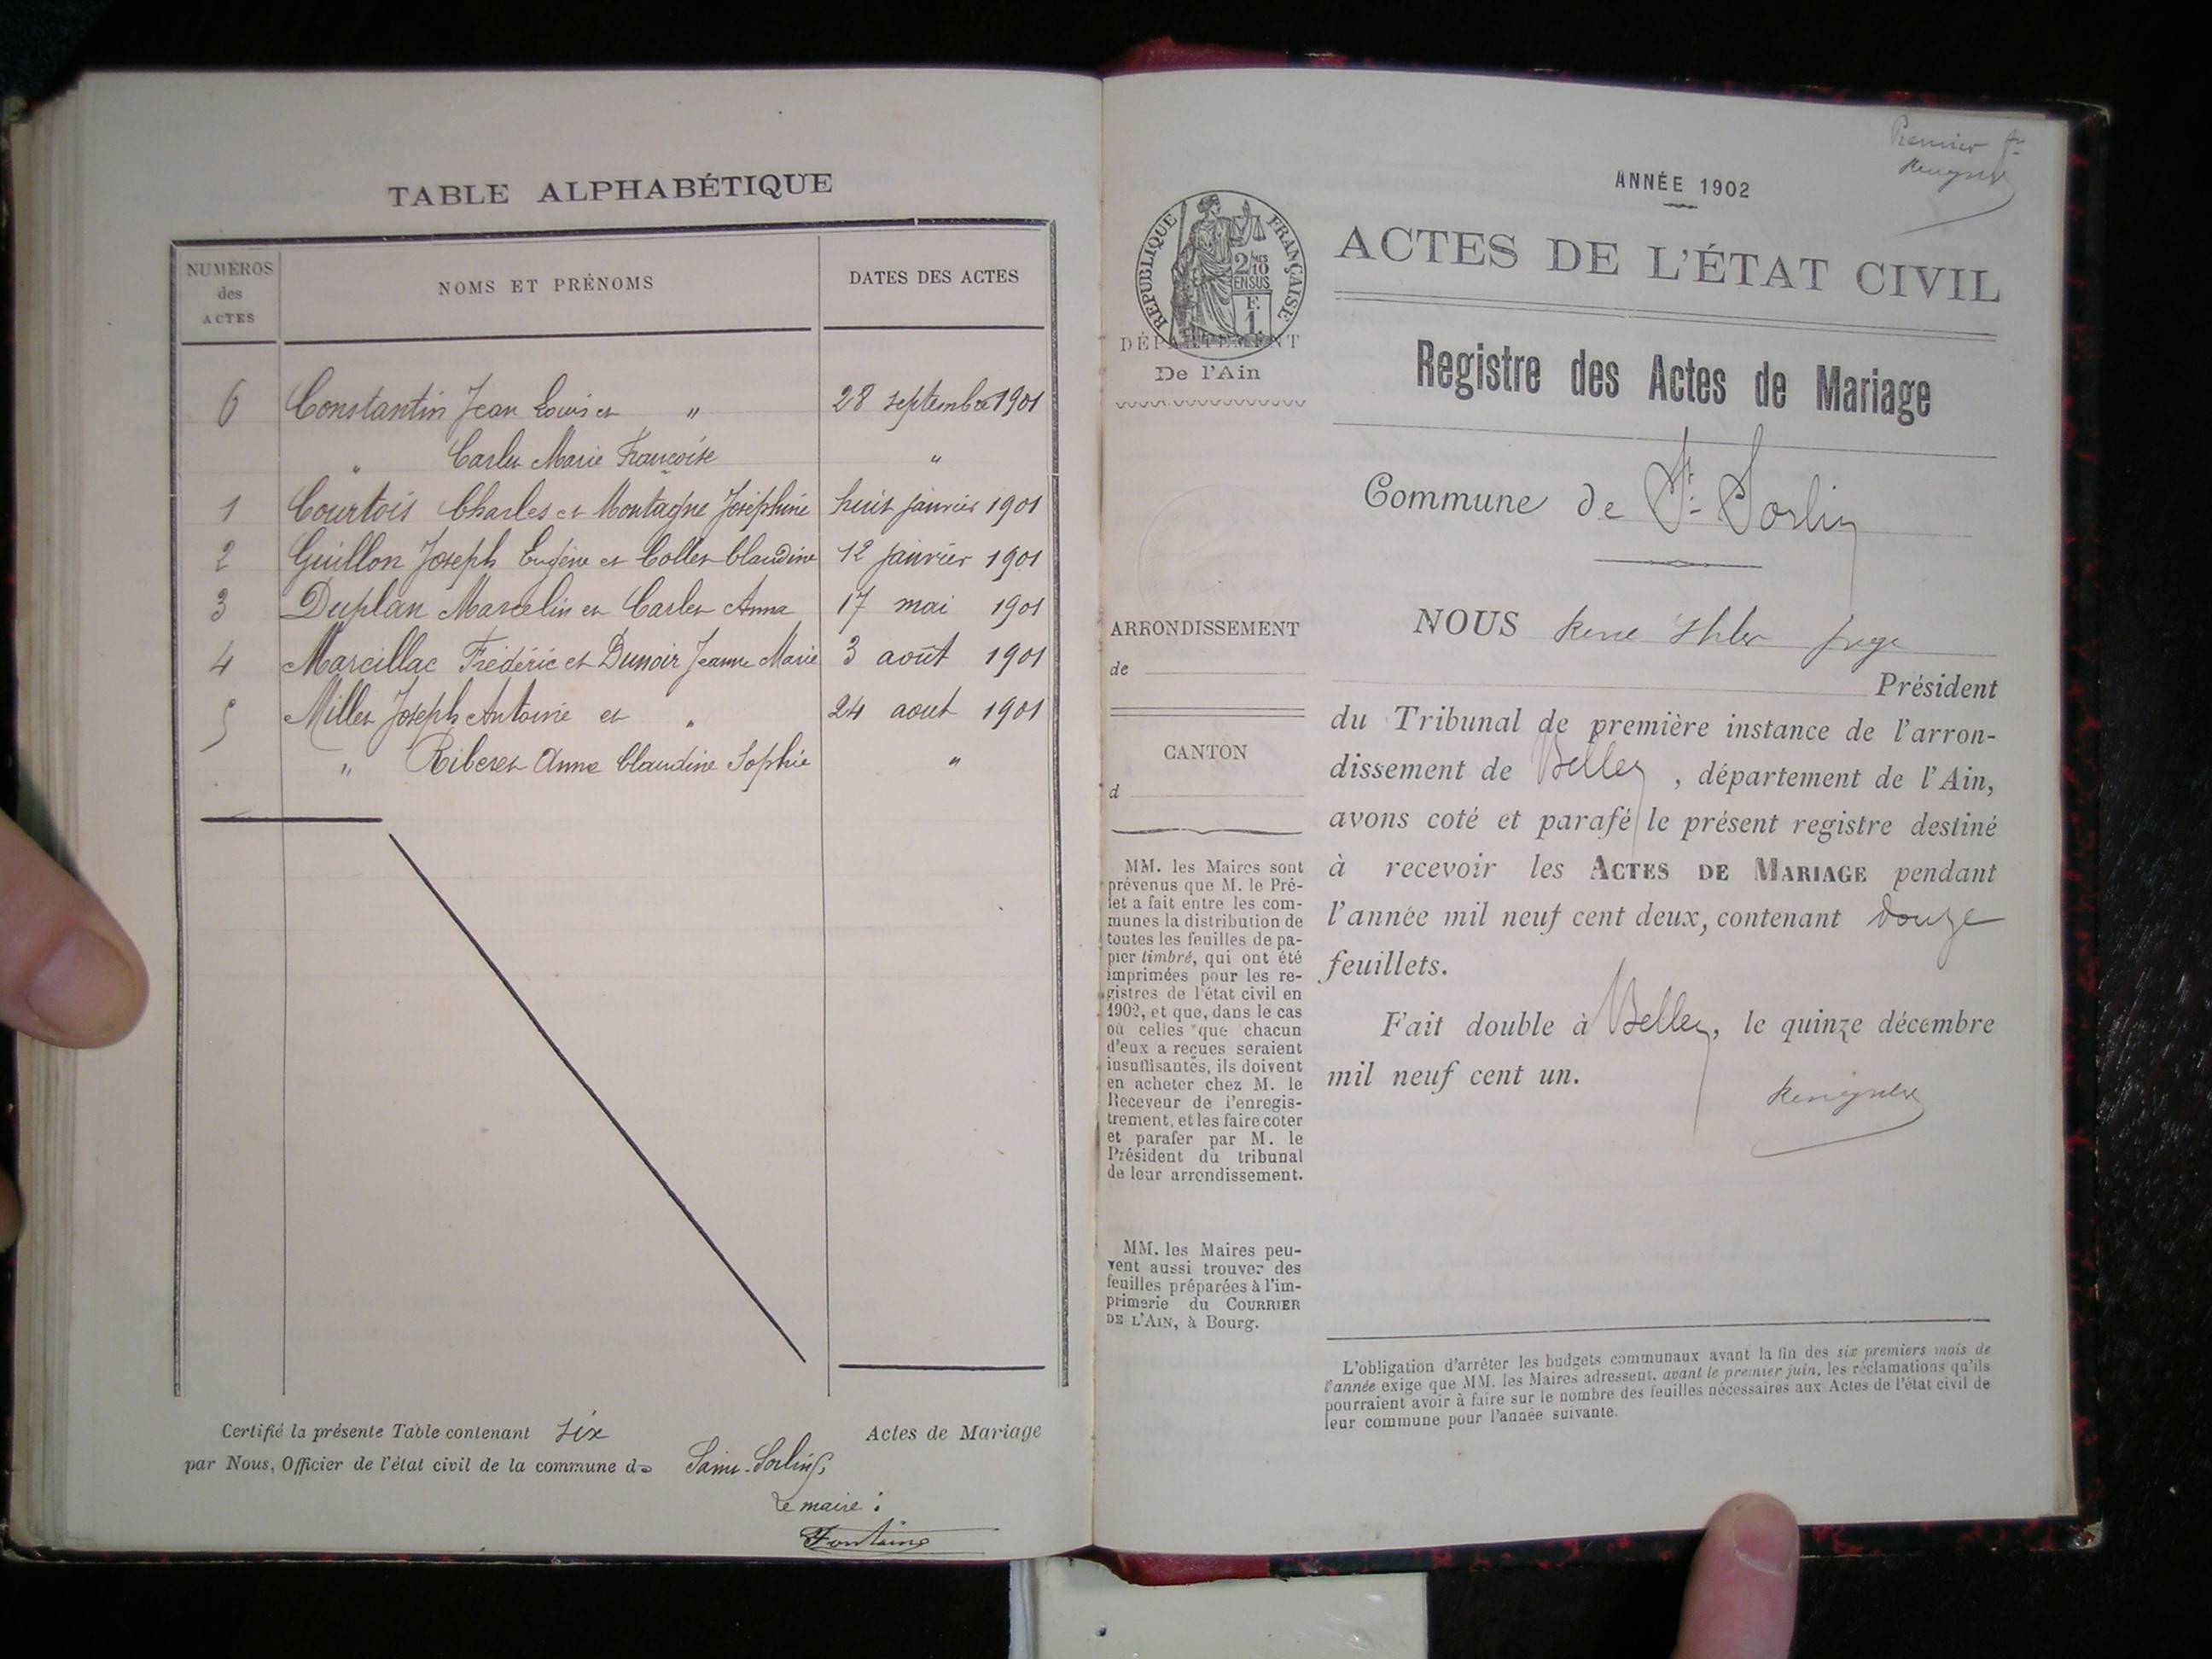 TABLE ALPHABÉTIQUE
NUMÉROS
des
ACTES
NOMS ET PRÉNOMS
DATES DES ACTES
6 Constantin Jean Louis et " 28 septembre 1901
" Carlet Marie Françoise "
1 Courtois Charles et Montagne Joséphine huit janvier 1901
2 Guillon Joseph Eugène et Collet Claudine 12 janvier 1901
3 Duplan Marcelin et Carlet Anna 17 mai 1901
4 Marcillac Frédéric et Dunoir Jeanne Marie 3 août 1901
5 Millet Joseph Antoine et " 24 aout 1901
" Riberet Anna Claudine Sophie "
Certifié la présente Table contenant six Actes de Mariage
par Nous, Officier de l'état civil de la commune de Saint-Sorlin,
Le maire :
Fontaine
Premier
ANNÉE 1902
ACTES DE L'ÉTAT CIVIL
RÉPUBLIQUE FRANÇAISE
2/10
EN SUS
F.
1.
DÉPARTEMENT
De l'Ain
Registre des Actes de Mariage
Commune de St. Sorlin
ARRONDISSEMENT
de
CANTON
d
MM. les Maires sont
prévenus que M. le Pré-
fet a fait entre les com-
munes la distribution de
toutes les feuilles de pa-
pier timbré, qui ont été
imprimées pour les re-
gistres de l'état civil en
1902, et que, dans le cas
où celles que chacun
d'eux a reçues seraient
insuffisantes, ils doivent
en acheter chez M. le
Receveur de l'enregis-
trement, et les faire coter
et parafer par M. le
Président du tribunal
de leur arrondissement.
MM. les Maires peu-
vent aussi trouver des
feuilles préparées à l'im-
primerie du COURRIER
DE L'AIN, à Bourg.
NOUS juge
Président
du Tribunal de première instance de l'arron-
dissement de Belley, département de l'Ain,
avons coté et parafé le présent registre destiné
à recevoir les ACTES DE MARIAGE pendant
l'année mil neuf cent deux, contenant douze
feuillets.
Fait double à Belley, le quinze décembre
mil neuf cent un.
L'obligation d'arrêter les budgets communaux avant la fin des six premiers mois de
l'année exige que MM. les Maires adressent, avant le premier juin, les réclamations qu'ils
pourraient avoir à faire sur le nombre des feuilles nécessaires aux Actes de l'état civil de
leur commune pour l'année suivante.